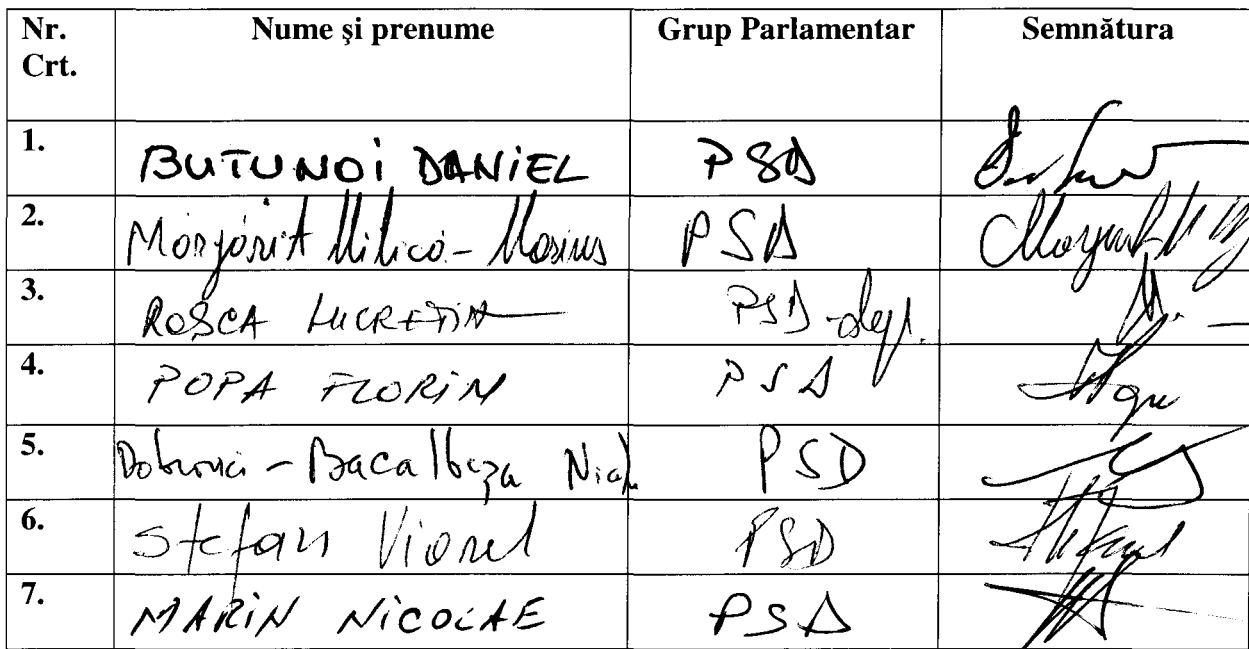 Nr. Crt. Nume și prenume Grup Parlamentar Semnătura
1. BUTUNOI DANIEL PSD
2. Morjărit Milică-Marius PSD
3. ROSCA LUCREȚIA PSD-dept.
4. POPA FLORIN PSD
5. Dobrovici-Bacalbașa Nicol PSD
6. Stefan Viorel PSD
7. MARIN NICOLAE PSD